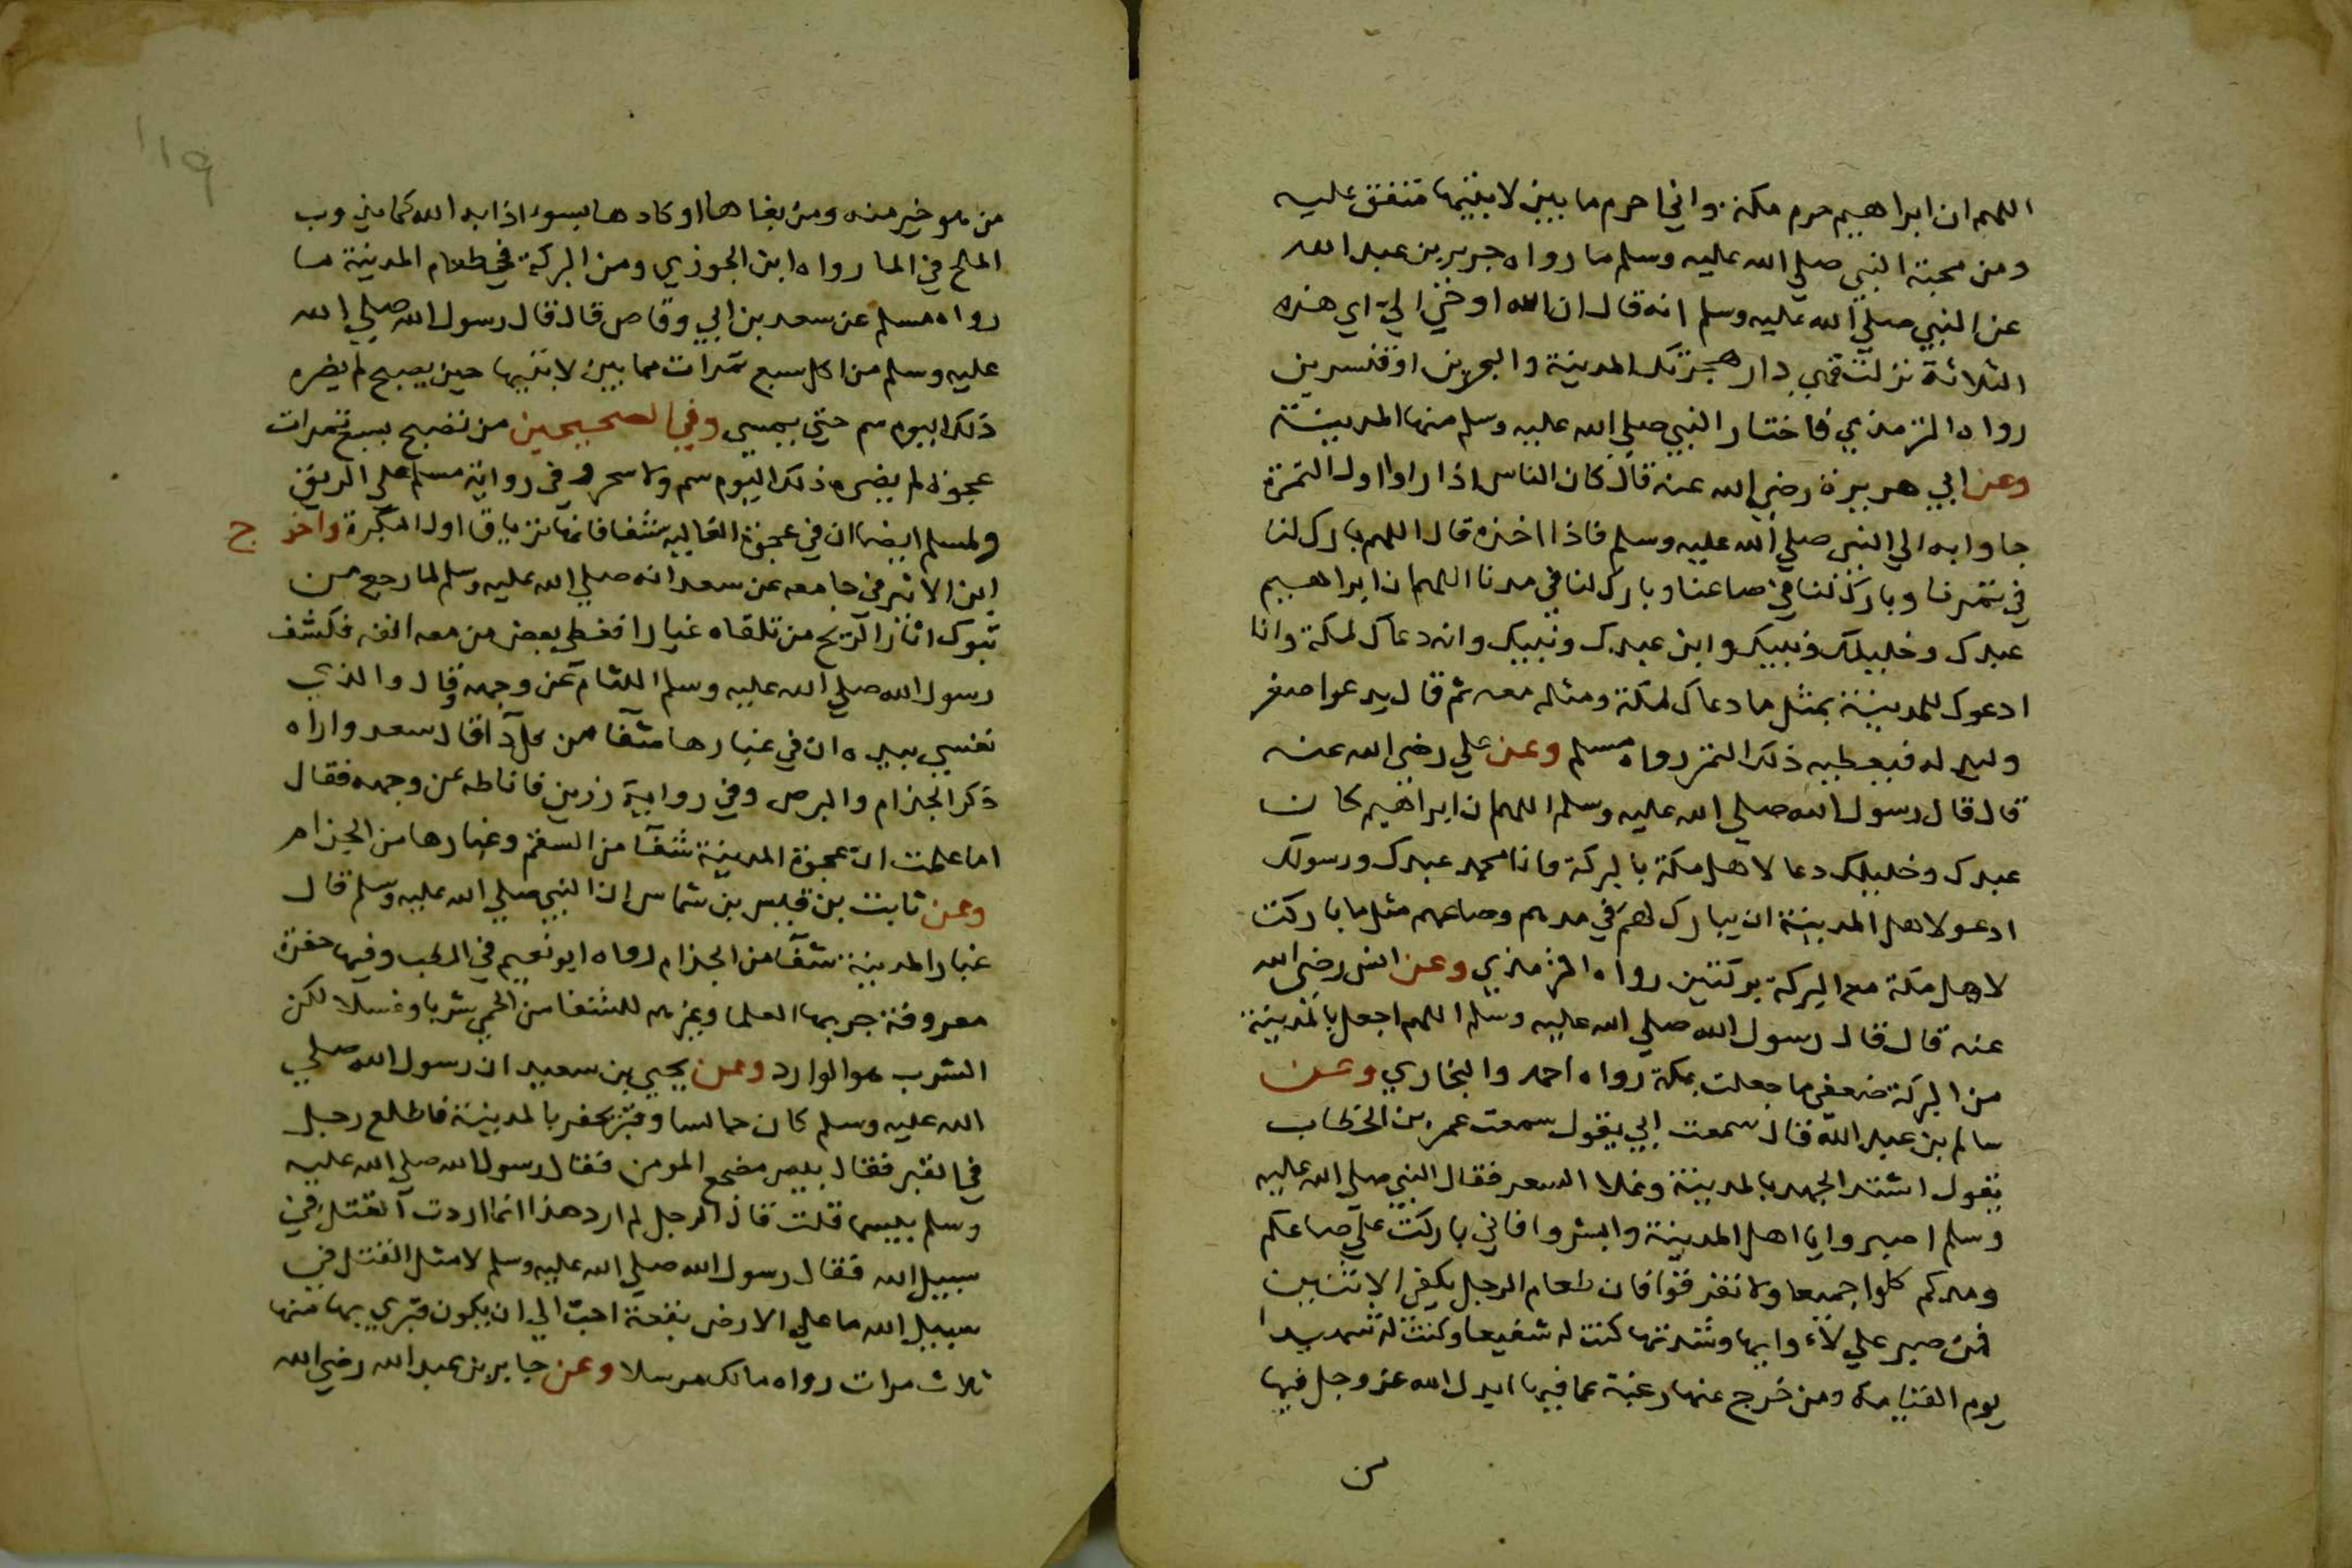 اللهم ان ابراهيم حرم مكة واني احرم ما بين لابتيها متفق عليه
ومن محبة النبي صلي الله عليه وسلم ما رواه جرير بن عبد الله
عن النبي صلي الله عليه وسلم انه قال ان الله اوحي الي اي هذه
الثلاثة نزلت فهي دار هجرتك المدينة والبحرين او قنسرين
رواه الترمذي فاختار النبي صلي الله عليه وسلم منها المدينة
وعن ابي هريرة رضي الله عنه قال كان الناس اذا راوا اول الثمرة
جاوا به الي النبي صلي الله عليه وسلم فاذا اخذه قال اللهم بارك لنا
في ثمرنا وبارك لنا في صاعنا وبارك لنا في مدنا اللهم ان ابراهيم
عبدك وخليلك ونبيك وابن عبدك ونبيك وانه دعاك لمكة وانا
ادعوك للمدينة بمثل ما دعاك لمكة ومثله معه ثم قال يدعوا صغر
وليد له فيعطيه ذلك الثمر رواه مسلم وعن علي رضي الله عنه
قال قال رسول الله صلي الله عليه وسلم اللهم ان ابراهيم كان
عبدك وخليلك دعا لاهل مكة بالبركة وانا محمد عبدك ورسولك
ادعو لاهل المدينة ان يبارك لهم في مدهم وصاعهم مثل ما باركت
لاهل مكة مع البركة بركتين رواه الترمذي وعن انس رضي الله
عنه قال قال رسول الله صلي الله عليه وسلم اللهم اجعل بالمدينة
من البركة ضعفي ما جعلت بمكة رواه احمد والبخاري وعن
سالم بن عبد الله قال سمعت ابي يقول سمعت عمر بن الخطاب
يقول اشتد الجهد بالمدينة وغلا السعر فقال النبي صلي الله عليه
وسلم اصبروا يا اهل المدينة وابشروا فاني باركت علي صاعكم
ومدكم كلوا جميعا ولا تفرقوا فان طعام الرجل يكفي الاثنين
فمن صبر علي لاءوايها وشدتها كنت له شفيعا وكنت له شهيدا
يوم القيامة ومن خرج عنها رغبة عما فيها ابدل الله عز وجل فيها
من
119
من هو خير منه ومن بغاها او كادها بسوء اذابه الله كما يذوب
الملح في الما رواه ابن الجوزي ومن البركة في طعام المدينة ما
رواه مسلم عن سعد بن ابي وقاص قال قال رسول الله صلي الله
عليه وسلم من اكل سبع تمرات مما بين لابتيها حين يصبح لم يضره
ذلك اليوم سم حتي يمسي وفي الصحيحين من تصبح بسبع تمرات
عجوة لم يضره ذلك اليوم سم ولا سحر وفي رواية مسلم علي الريق
ولمسلم ايضا ان في عجوة العاليه شفا فانها ترياق اول البكرة واخرج
ابن الاثير في جامعه عن سعد انه صلي الله عليه وسلم لما رجع من
تبوك اثار الريح من تلقاه غبارا فغطي بعض من معه انفه فكشف
رسول الله صلي الله عليه وسلم اللثام عن وجهه وقال والذي
نفسي بيده ان في غبارها شفآ من كل دآ قال سعد واراه
ذكر الجذام والبرص وفي رواية رزين فاماطه عن وجهه فقال
اما علمت ان عجوة المدينة شفآ من السقم وغبارها من الجذام
وعن ثابت بن قيس بن شماس ان النبي صلي الله عليه وسلم قال
غبار المدينة شفآ من الجذام رواه ابو نعيم في الطب وفيها حفرة
معروفة جربها العلما وغيرهم للشفا من الحمي شربا وغسلا لكن
الشرب هو الوارد وعن يحيي بن سعيد ان رسول الله صلي
الله عليه وسلم كان جالسا وقبر يحفر بالمدينة فاطلع رجل
في القبر فقال بيس مضجع المومن فقال رسول الله صلي الله عليه
وسلم بيسما قلت قال الرجل لم ارد هذا انما اردت آلقتل في
سبيل الله فقال رسول الله صلي الله عليه وسلم لا مثل القتل في
سبيل الله ما علي الارض بقعة احب الي ان يكون قبري بها منها
ثلاث مرات رواه مالك مرسلا وعن جابر بن عبد الله رضي الله